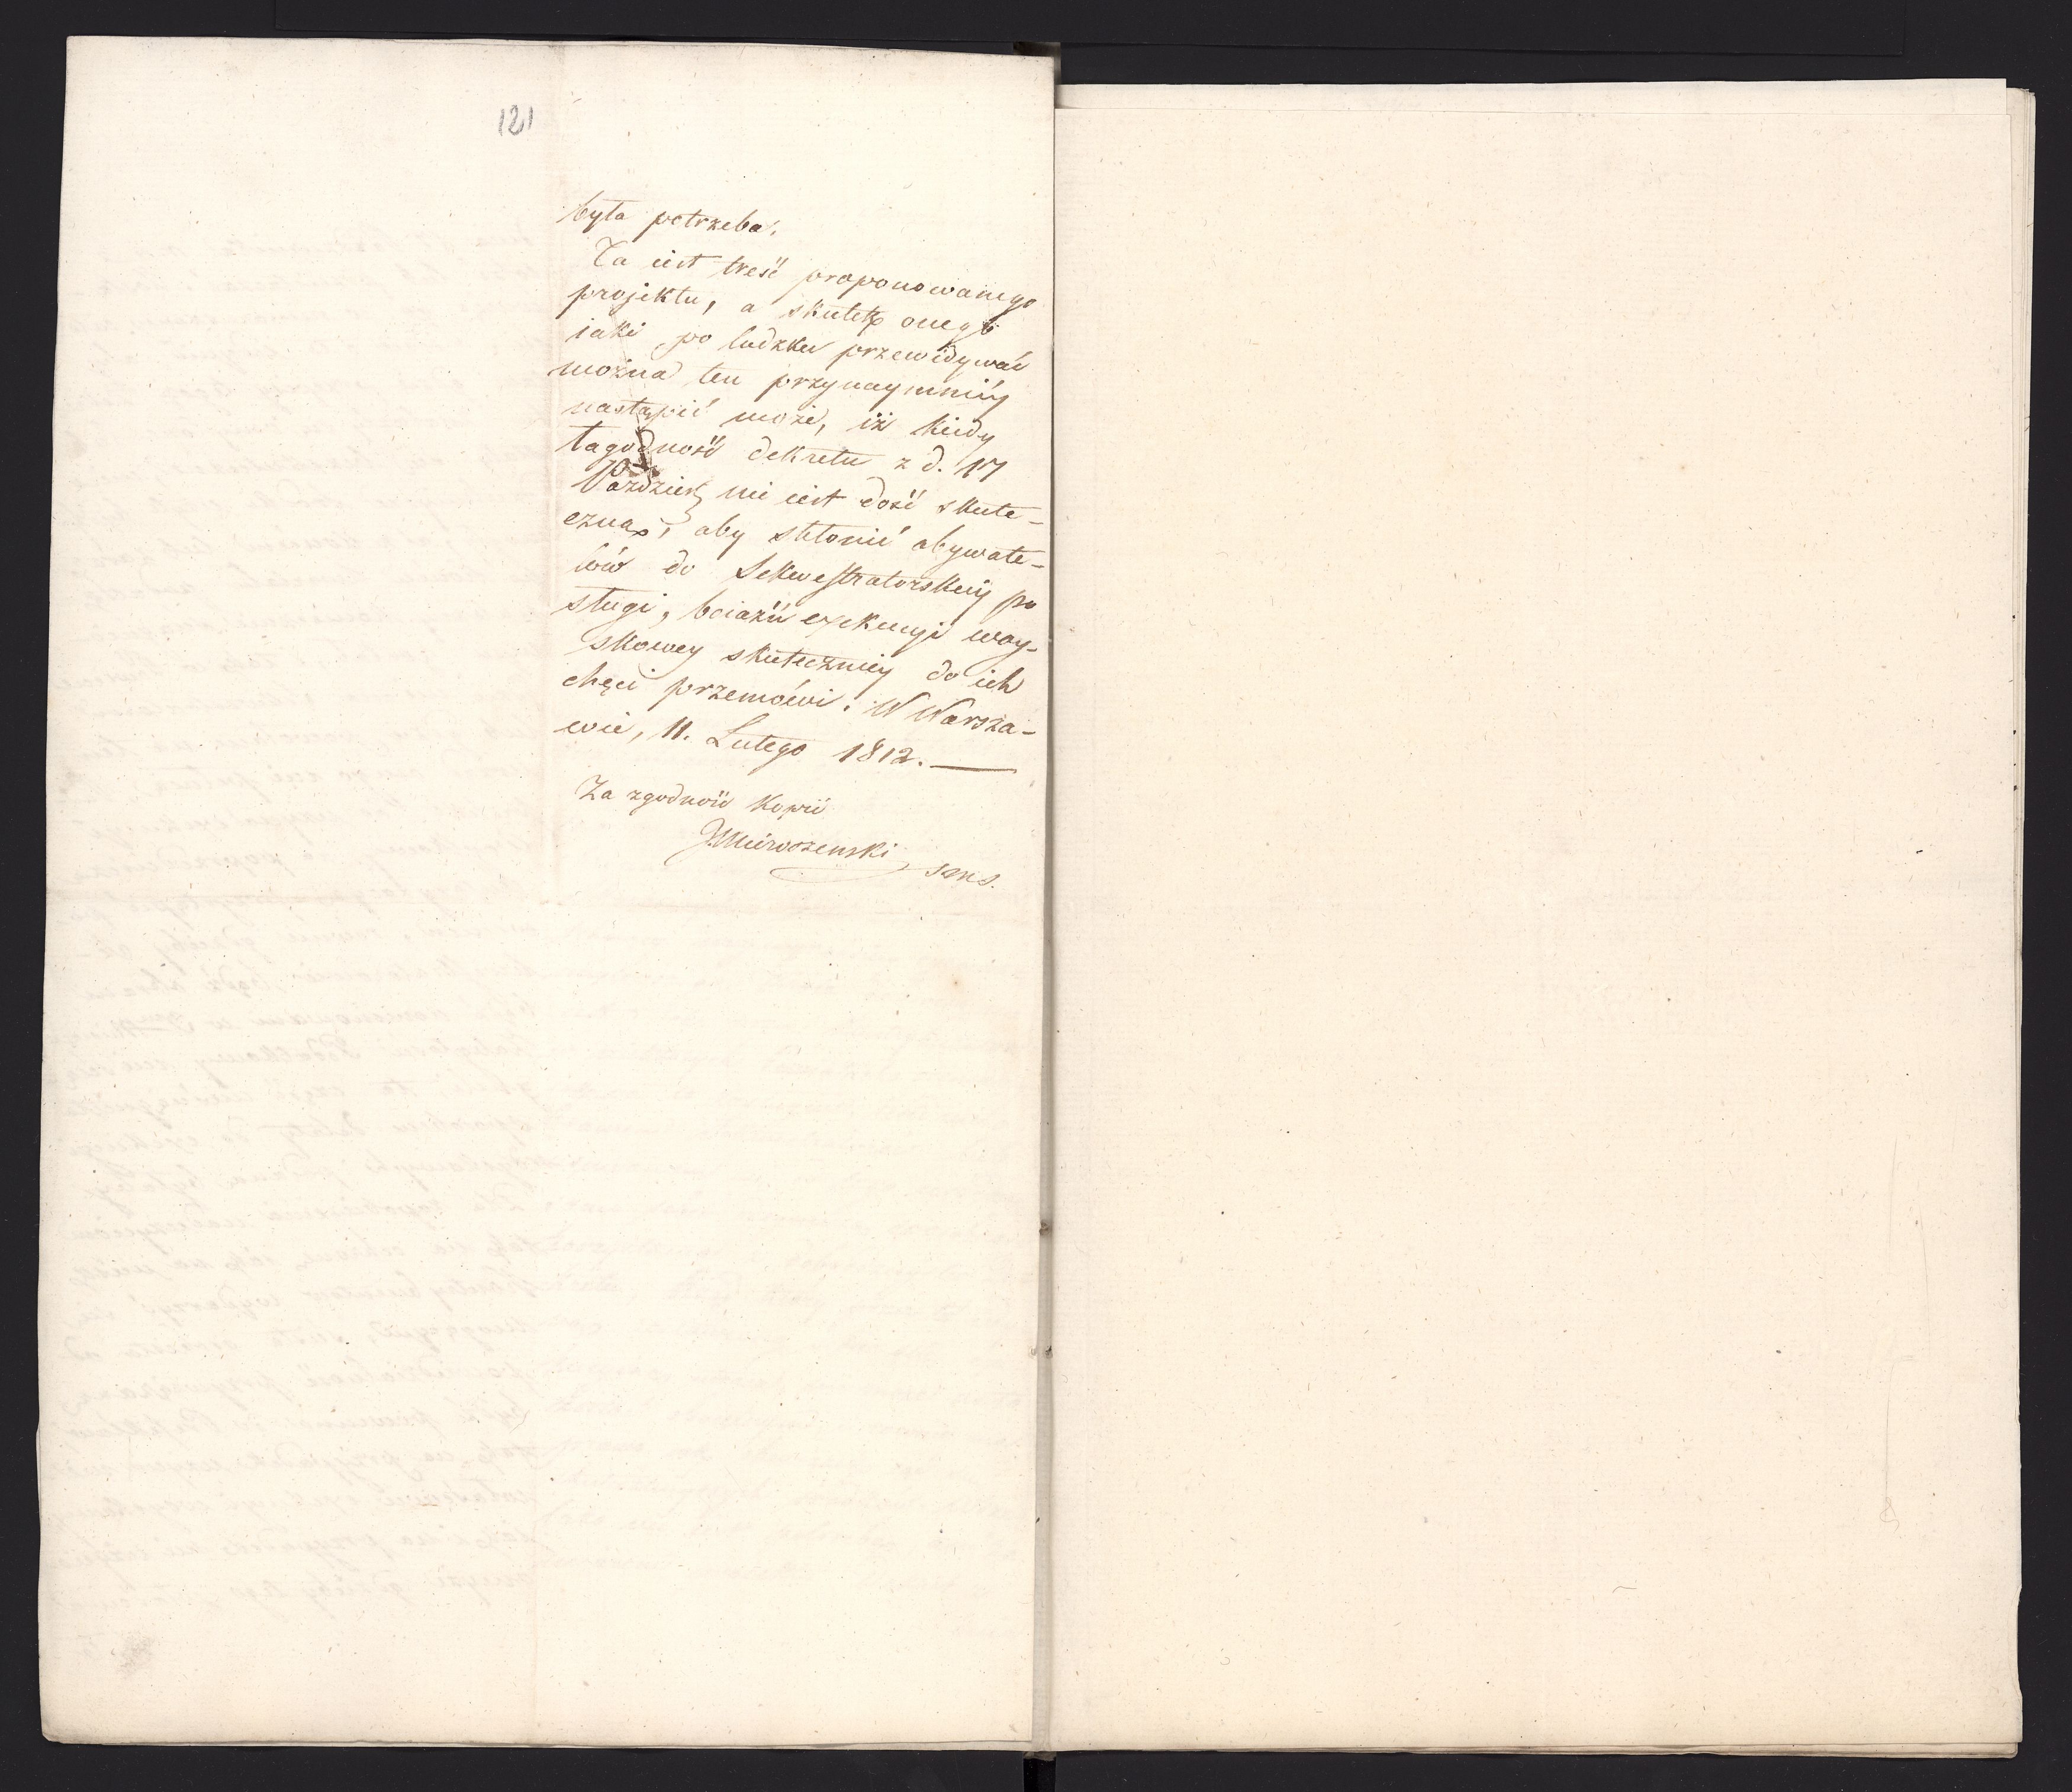 121
była potrzeba.
Ta iest treść proponowanego
projektu, a skutek onego
iaki po ludzku przewidywać
można ten przynaymniéy
nastąpić może, iż kiedy
łagodność dekretu z d. 17
Paździer. nie iest dość skute-
czna, aby skłonić obywate-
lów do Sekwestratorskiéy po
sługi, bojaźń exekucyi woy-
skowey skuteczniéy do ich
chęci przemówi. W Warsza-
wie, 11. Lutego 1812.
Za zgodność Kopii